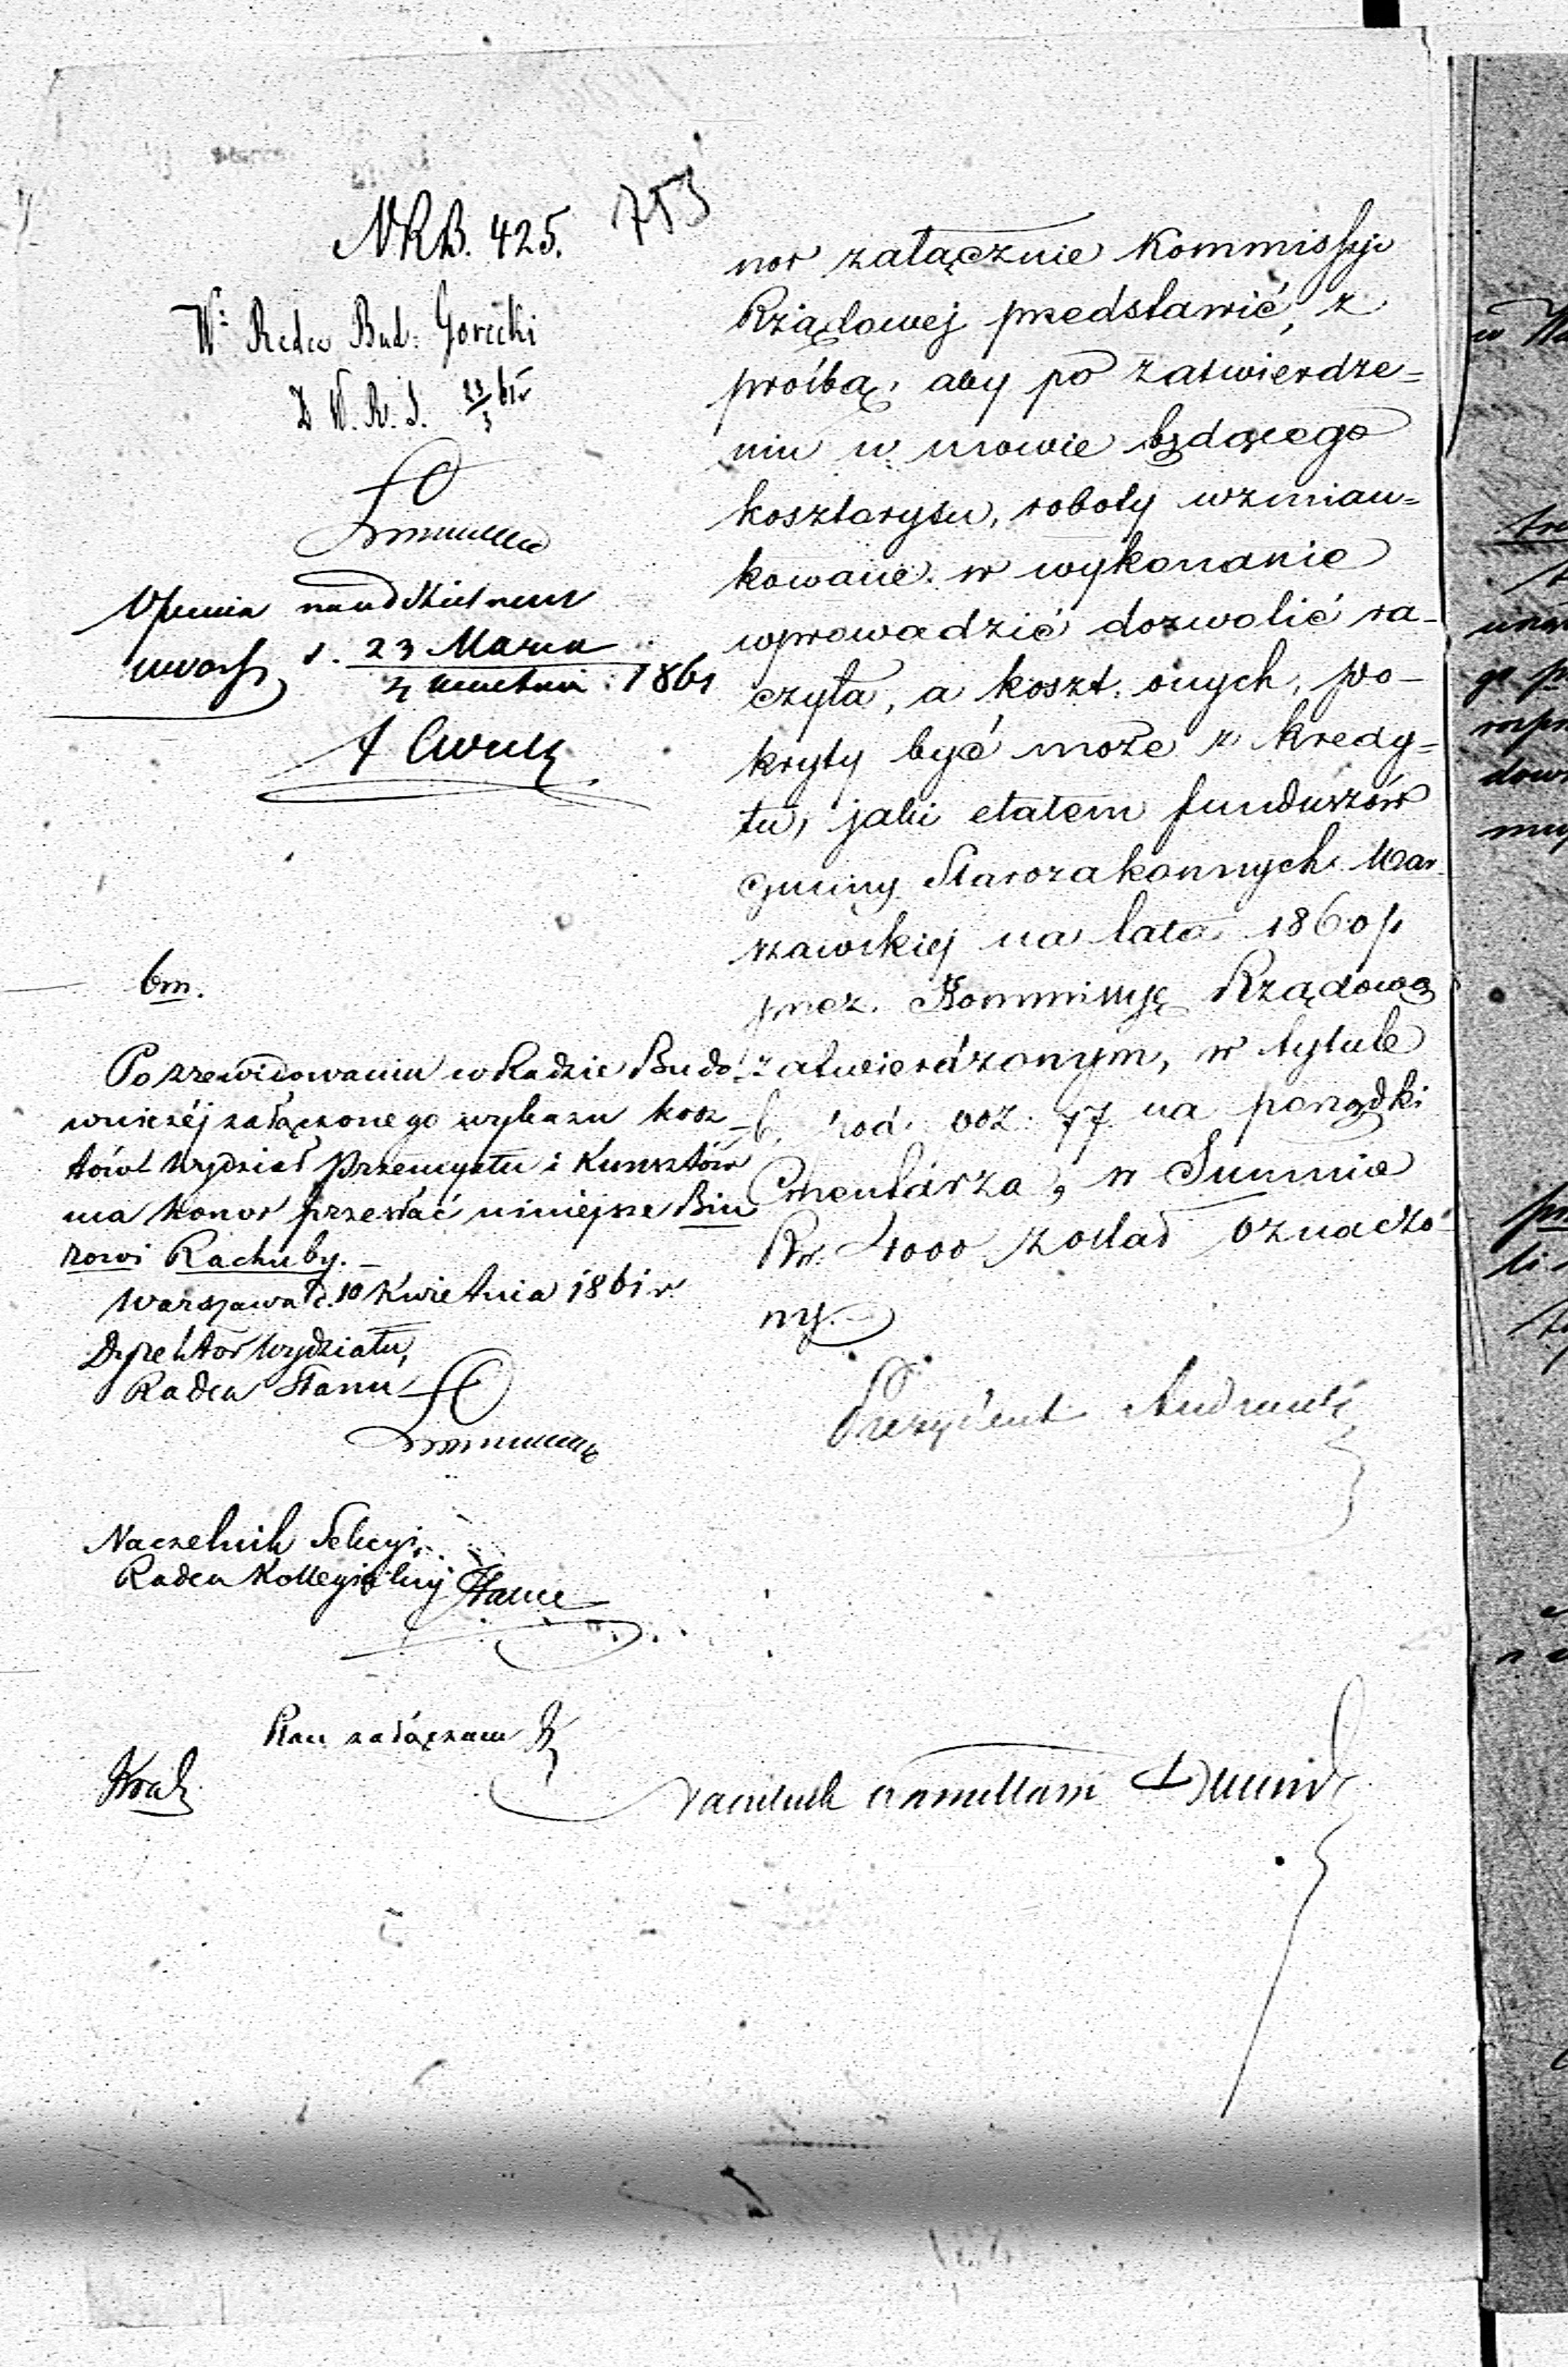 NRB. 425.
753
Wº Radca Bud: Gorecki
D. W. R. S. 23/3 61 r
d. 23 Marca
4 Kwietnia 1861
bm.
Po zrewidowaniu w Radzie Budo-
wniczéj załączonego wykazu kosz-
tów Wydział Przemysłu i Kunsztów
ma honor przesłać niniejsze Biu
rowi Rachuby.
Warszawa d. 10 Kwietnia 1861 r.
Dyrektor Wydziału,
Radca Stanu
Naczelnik Sekcyi,
Radca Kollegialny
Plan załączam
nor załącznie Kommissyi
Rządowej przedstawić, z
prośbą, aby po zatwierdze=
niu w mowie będącego
kosztorysu, roboty wzmian=
kowane w wykonanie
wprowadzić dozwolić ra-
czyła, a koszt onych, po-
kryty być może z kredy=
tu, jaki etatem funduszów
Gminy Starozakonnych War-
szawskiej na lata 1860/
przez Kommissyę Rządową
zatwierdzonym, w tytule
6, pod poz: 77 na porządki
Cmentarza, w Summie
Rsr. 4000 został oznaczo-
ny.
Prezydent